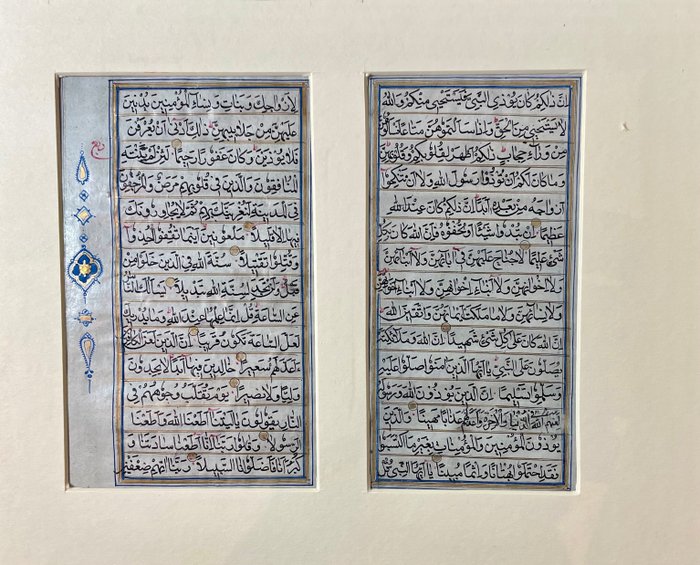 اِنَّ ذٰلِكُمْ كَانَ يُؤْذِي النَّبِيَّ فَيَسْتَحْيِي مِنْكُمْ وَاللّٰهُ
لَا يَسْتَحْيِي مِنَ الْحَقِّ وَاِذَا سَاَلْتُمُوهُنَّ مَتَاعًا
مِنْ وَرَآءِ حِجَابٍ ذٰلِكُمْ اَطْهَرُ لِقُلُوبِكُمْ وَقُلُوبِهِنَّ
وَمَا كَانَ لَكُمْ اَنْ تُؤْذُوا رَسُولَ اللّٰهِ وَلَا اَنْ تَنْكِحُوا
اَزْوَاجَهُ مِنْ بَعْدِهِ اَبَدًا اِنَّ ذٰلِكُمْ كَانَ عِنْدَ اللّٰهِ
عَظِيمًا اِنْ تُبْدُوا شَيْئًا اَوْ تُخْفُوهُ فَاِنَّ اللّٰهَ كَانَ بِكُلِّ
شَيْءٍ عَلِيمًا لَا جُنَاحَ عَلَيْهِنَّ فِي اٰبَآئِهِنَّ وَلَا اَبْنَآئِهِنَّ
وَلَا اِخْوَانِهِنَّ وَلَا اَبْنَآءِ اِخْوَانِهِنَّ وَلَا اَبْنَآءِ اَخَوَاتِهِنَّ
وَلَا نِسَآئِهِنَّ وَلَا مَا مَلَكَتْ اَيْمَانُهُنَّ وَاتَّقِينَ اللّٰهَ
اِنَّ اللّٰهَ كَانَ عَلٰى كُلِّ شَيْءٍ شَهِيدًا اِنَّ اللّٰهَ وَمَلٰٓئِكَتَهُ
يُصَلُّونَ عَلَى النَّبِيِّ يَا اَيُّهَا الَّذِينَ اٰمَنُوا صَلُّوا عَلَيْهِ
وَسَلِّمُوا تَسْلِيمًا اِنَّ الَّذِينَ يُؤْذُونَ اللّٰهَ وَرَسُولَهُ
لَعَنَهُمُ اللّٰهُ فِي الدُّنْيَا وَالْاٰخِرَةِ وَاَعَدَّ لَهُمْ عَذَابًا مُهِينًا وَالَّذِينَ
يُؤْذُونَ الْمُؤْمِنِينَ وَالْمُؤْمِنَاتِ بِغَيْرِ مَا اكْتَسَبُوا
فَقَدِ احْتَمَلُوا بُهْتَانًا وَاِثْمًا مُبِينًا يَا اَيُّهَا النَّبِيُّ قُلْ
لِاَزْوَاجِكَ وَبَنَاتِكَ وَنِسَآءِ الْمُؤْمِنِينَ يُدْنِينَ
عَلَيْهِنَّ مِنْ جَلَابِيبِهِنَّ ذٰلِكَ اَدْنٰى اَنْ يُعْرَفْنَ
فَلَا يُؤْذَيْنَ وَكَانَ غَفُورًا رَحِيمًا لَئِنْ لَمْ يَنْتَهِ
ربع
الْمُنَافِقُونَ وَالَّذِينَ فِي قُلُوبِهِمْ مَرَضٌ وَالْمُرْجِفُونَ
فِي الْمَدِينَةِ لَنُغْرِيَنَّكَ بِهِمْ ثُمَّ لَا يُجَاوِرُونَكَ
فِيهَا اِلَّا قَلِيلًا مَلْعُونِينَ اَيْنَمَا ثُقِفُوا اُخِذُوا
وَقُتِّلُوا تَقْتِيلًا سُنَّةَ اللّٰهِ فِي الَّذِينَ خَلَوْا مِنْ
قَبْلُ وَلَنْ تَجِدَ لِسُنَّةِ اللّٰهِ تَبْدِيلًا يَسْئَلُكَ النَّاسُ
عَنِ السَّاعَةِ قُلْ اِنَّمَا عِلْمُهَا عِنْدَ اللّٰهِ وَمَا يُدْرِيكَ
لَعَلَّ السَّاعَةَ تَكُونُ قَرِيبًا اِنَّ لَعَنَ الْكَافِرِينَ
وَاَعَدَّ لَهُمْ سَعِيرًا خَالِدِينَ فِيهَا اَبَدًا لَا يَجِدُونَ
وَلِيًّا وَلَا نَصِيرًا يَوْمَ تُقَلَّبُ وُجُوهُهُمْ فِي
النَّارِ يَقُولُونَ يَا لَيْتَنَا اَطَعْنَا اللّٰهَ وَاَطَعْنَا
الرَّسُولَا وَقَالُوا رَبَّنَا اِنَّا اَطَعْنَا سَادَتَنَا وَ
كُبَرَآءَنَا فَاَضَلُّونَا السَّبِيلَا رَبَّنَا اٰتِهِمْ ضِعْفَيْنِ